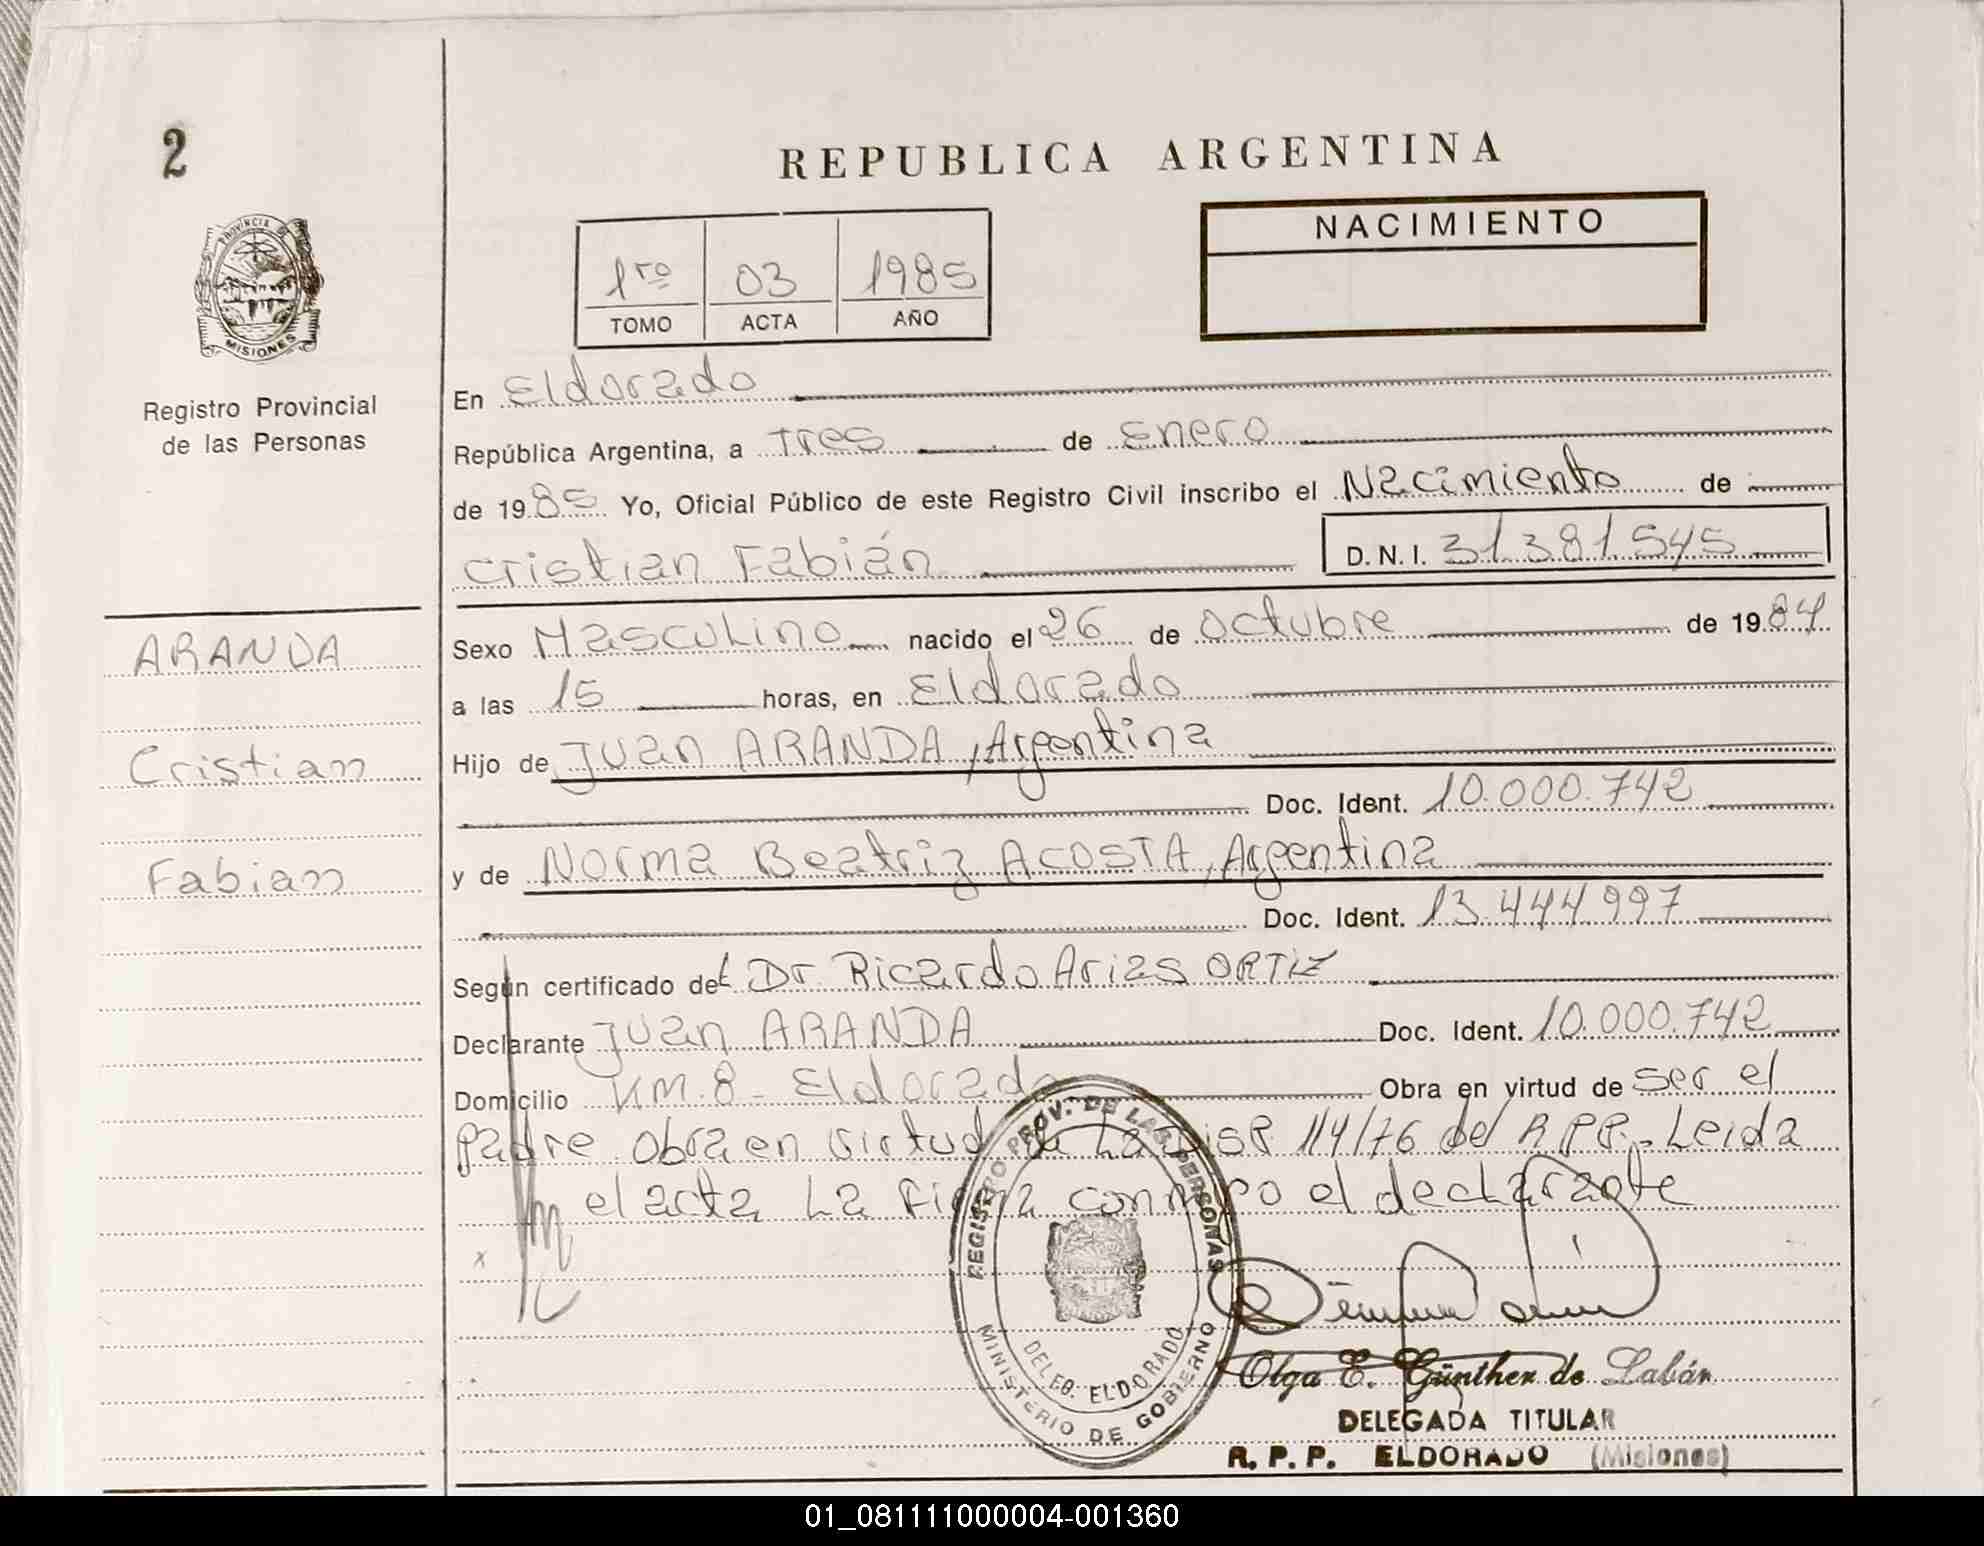 2
REPUBLICA ARGENTINA
NACIMIENTO
1ro 03 1985
TOMO ACTA AÑO
PROVINCIA DE MISIONES
Registro Provincial
de las Personas
En Eldorado
República Argentina, a Tres de Enero
de 1985 Yo, Oficial Público de este Registro Civil inscribo el Nacimiento de
Cristian Fabián D.N.I. 31.381.545
ARANDA
Cristian
Fabian
Sexo Masculino nacido el 26 de Octubre de 1984
a las 15 horas, en Eldorado
Hijo de Juan ARANDA, Argentina
Doc. Ident. 10.000.742
y de Norma Beatriz ACOSTA, Argentina
Doc. Ident. 13.444.997
Según certificado del Dr Ricardo Arias ORTIZ
Declarante Juan ARANDA Doc. Ident. 10.000.742
Domicilio KM.8 - Eldorado Obra en virtud de ser el
padre obra en virtud de La Disp 114/76 del R.P.P.- Leida
el acta La firma conmigo el declarante
x
REGISTRO PROV. DE LAS PERSONAS
MINISTERIO DE GOBIERNO
DELEG. ELDORADO
Olga E. Günther de Labán
DELEGADA TITULAR
R. P. P. ELDORADO (Misiones)
01_081111000004-001360